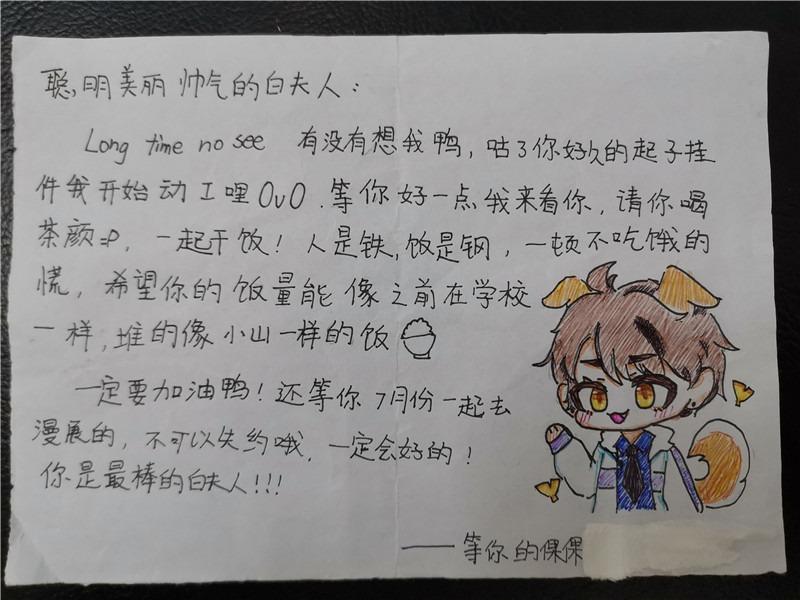 聪明美丽帅气的白夫人：
Long time no see 有没有想我鸭，咕了你好久的起子挂
件我开始动工哩OvO．等你好一点我来看你，请你喝
茶颜=D，一起干饭！人是铁，饭是钢，一顿不吃饿的
慌，希望你的饭量能像之前在学校
一样，堆的像小山一样的饭
一定要加油鸭！还等你7月份一起去
漫展的，不可以失约哦，一定会好的！
你是最棒的白夫人!!!
——等你的倮倮